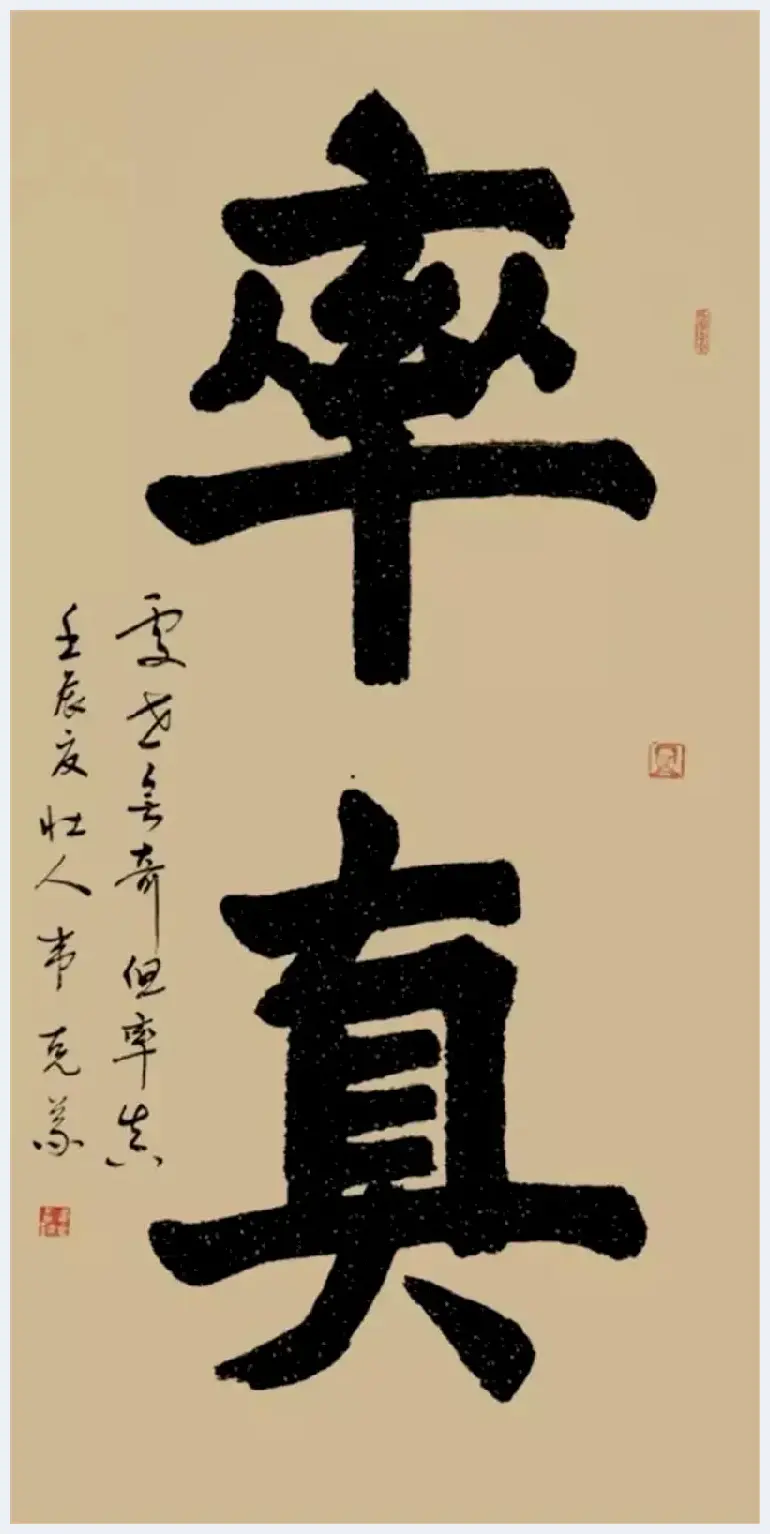 率真
處世無奇但率真
壬辰夏壮人韦克义